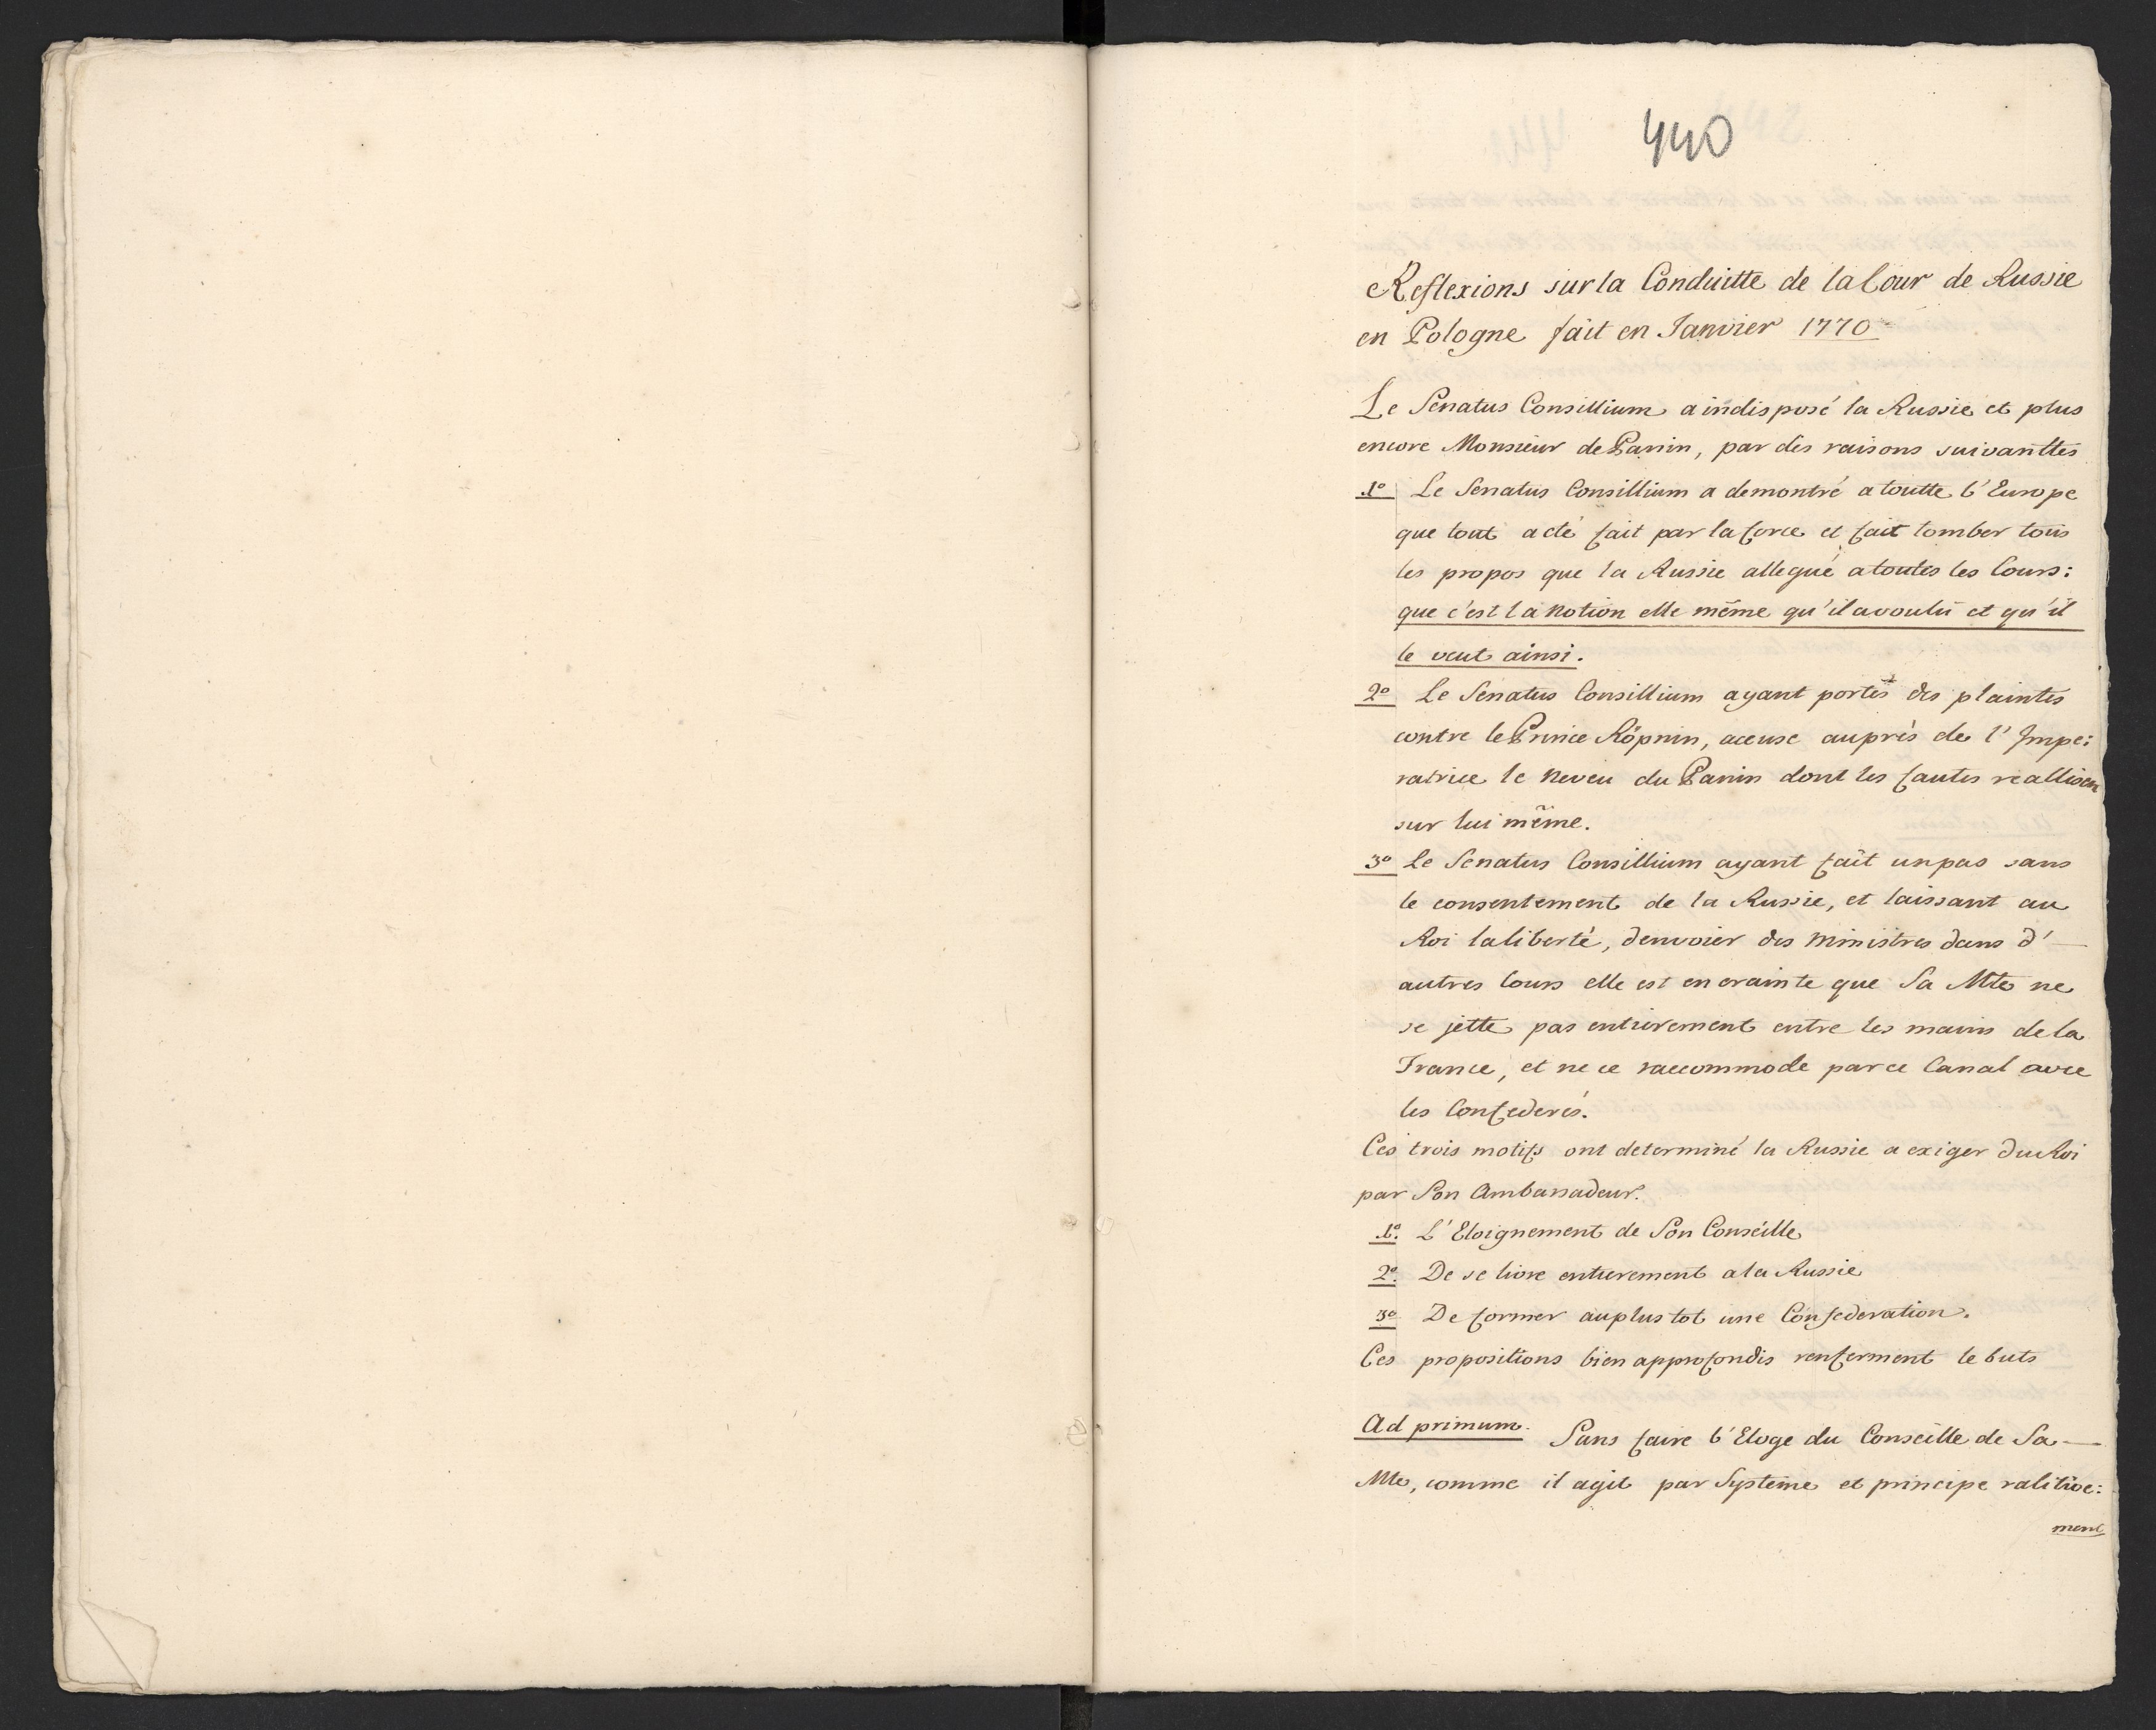 440
Reflexions sur la Conduitte de la Cour de Russie
en Pologne fait en Janvier 1770
Le Senatus Consillium a indisposé la Russie et plus
encore Monsieur de Panin, par des raisons suivanttes
1º Le Senatus Consillium a demontré a toutte l'Europe
que tout acte fait par la force et fait tomber tous
les propos que la Russie allegué a toutes les Cours:
que c'est la Nation elle même qu'il a voulu et qu'il
le veut ainsi.
2º Le Senatus Consillium ayant portés des plaintes
contre le Prince Répnin, accuse auprès de l'Impe:
ratrice le Neveu du Panin dont les fautes reallisen
sur lui même.
3º Le Senatus Consillium ayant fait un pas sans
le consentement de la Russie, et laissant au
Roi la liberté, denvoier des Ministres dans d'
autres Cours elle est en crainte que Sa Mte ne
se jette pas entierement entre les mains de la
France, et ne ce raccommode par ce Canal avec
les Confederés.
Ces trois motifs ont determiné la Russie a exiger du Roi
par Son Ambassadeur.
1º. L'Eloignement de Son Conseille
2º. De se livre entierement a la Russie
3º De former au plus tot une Confederation.
Ces propositions bien approfondis renferment le buts
Ad primum. Sans faire l'Eloge du Conseille de Sa
Mte, comme il agit par Systeme et principe ralitive:
ment